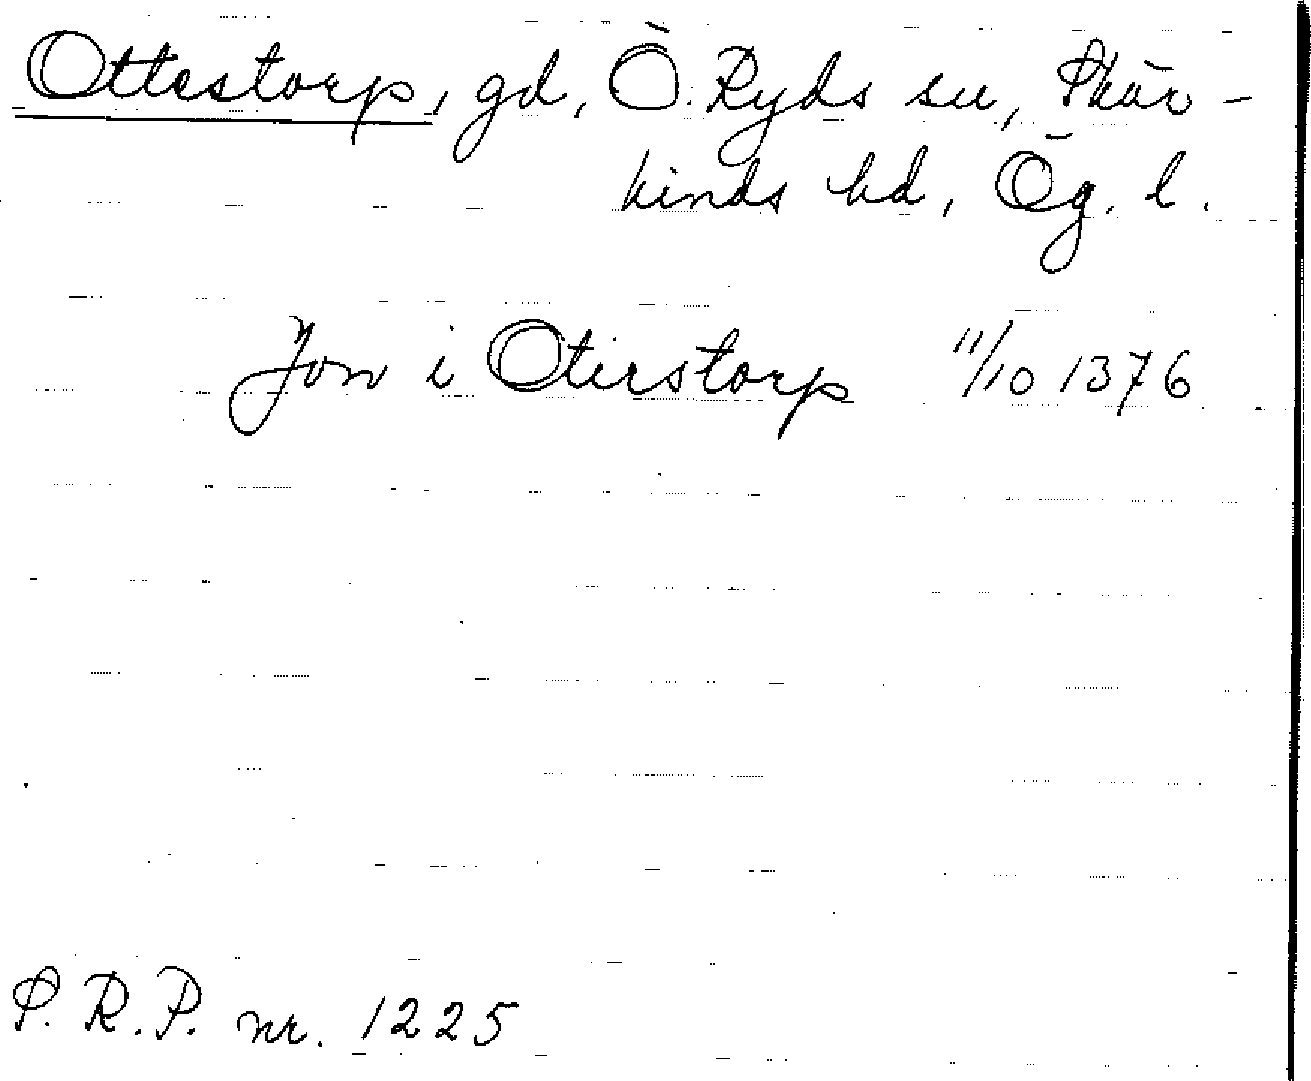 Ottestorp, gd, Ö. Ryds sn, Skär-
kinds hd, Ög. l.
Jon i Otirstorp 11/10 1376
S. R. P. nr. 1225